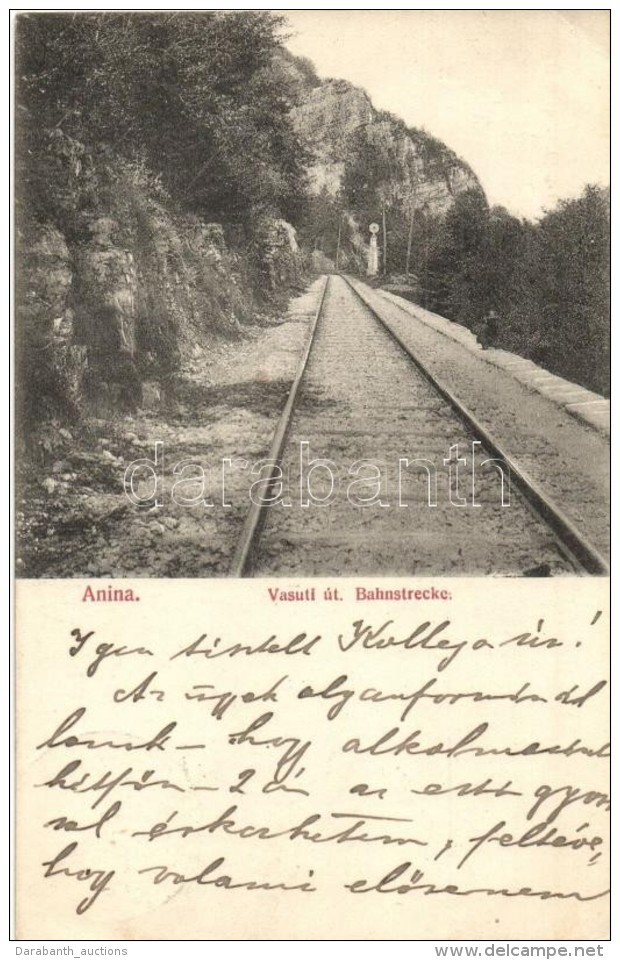 darabanth
Anina. Vasuti út. Bahnstrecke.
Igen tisztelt Kolléga úr!
Az ügyek olyanformán ál
lanak – hogy alkalmasint
hétfőn – 2 án az esti gyors
sal érkezhetem, feltéve,
hogy valami előre nem
Darabanth_auctions www.delcampe.net